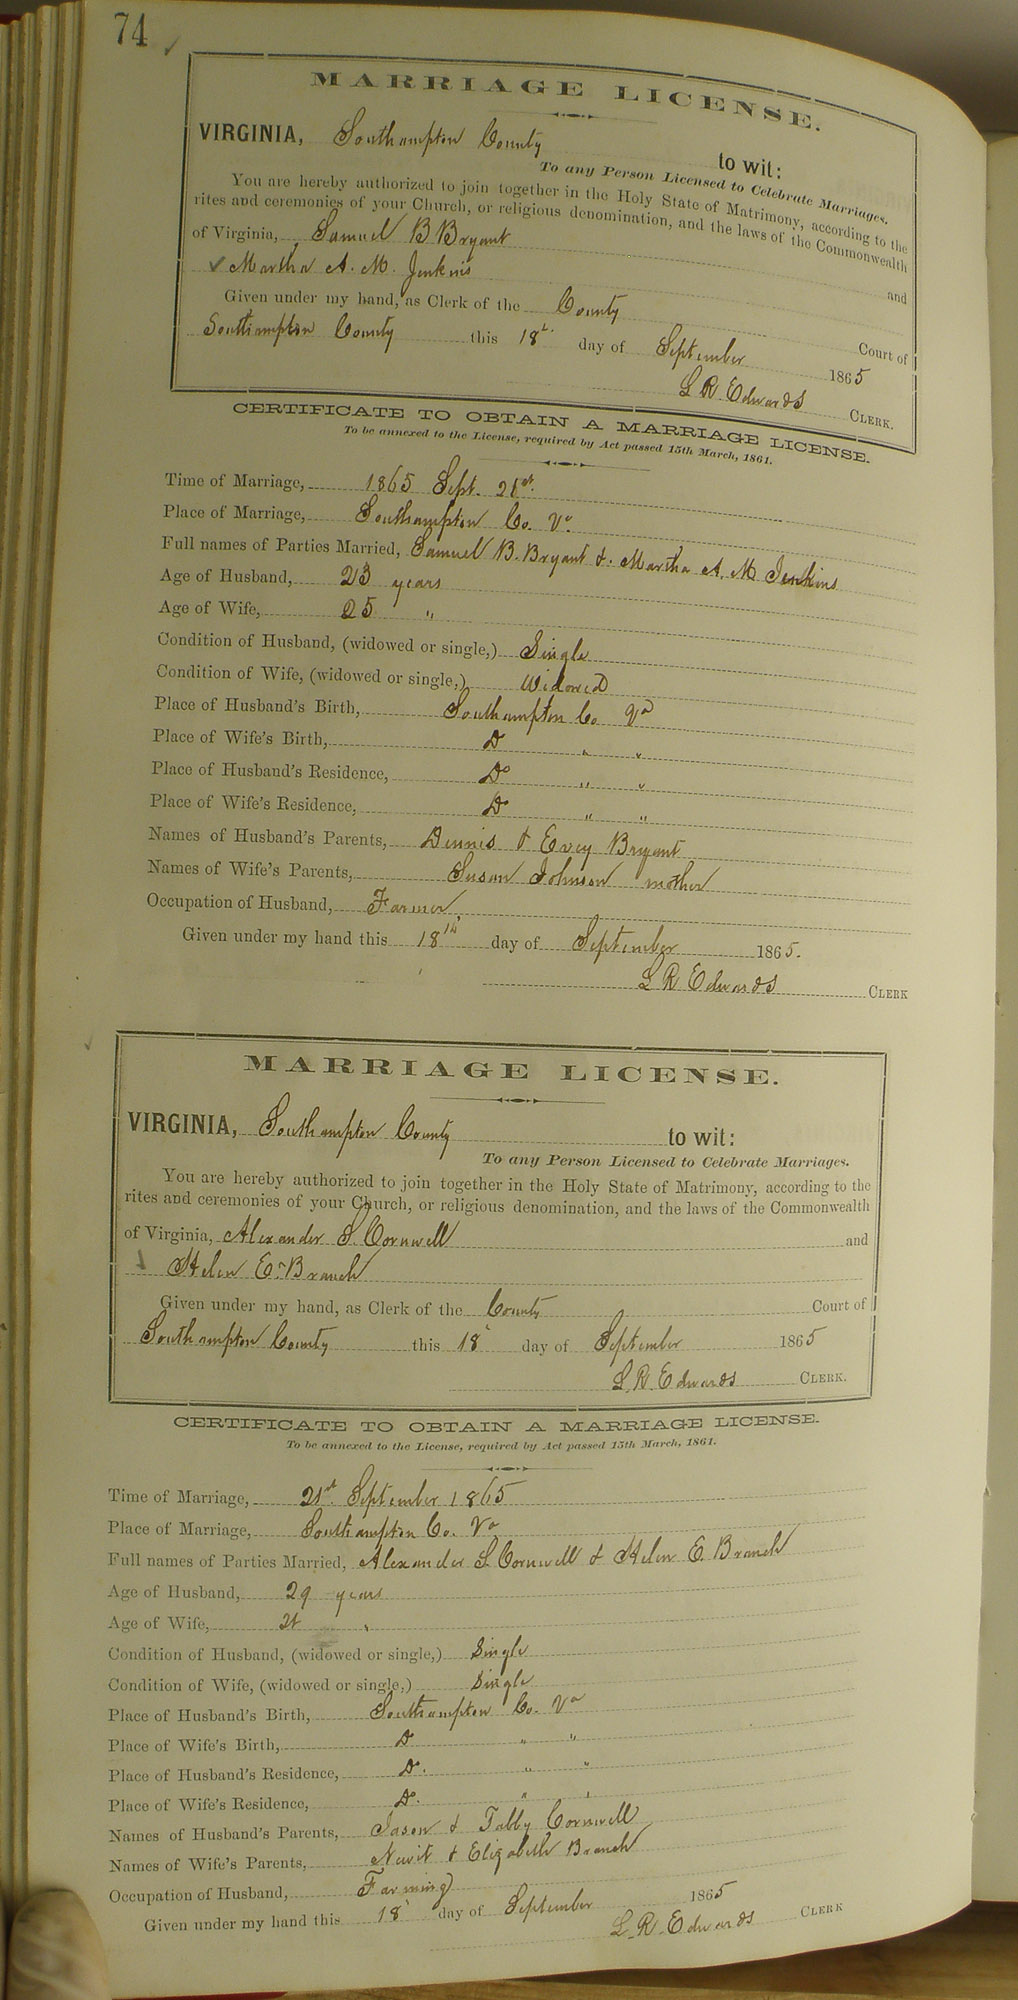 74
MARRIAGE LICENSE.
VIRGINIA, Southampton County to wit:
To any Person Licensed to Celebrate Marriages.
You are hereby authorized to join together in the Holy State of Matrimony, according to the
rites and ceremonies of your Church, or religious denomination, and the laws of the Commonwealth
of Virginia, Samuel B Bryant and
Martha A. M. Jenkins
Given under my hand, as Clerk of the County Court of
Southampton County this 18 day of September 1865
L R Edwards CLERK.
CERTIFICATE TO OBTAIN A MARRIAGE LICENSE.
To be annexed to the License, required by Act passed 15th March, 1861.
Time of Marriage, 1865 Sept. 21st.
Place of Marriage, Southampton Co. Va
Full names of Parties Married, Samuel B. Bryant & Martha A. M Jenkins
Age of Husband, 23 years
Age of Wife, 25 "
Condition of Husband, (widowed or single,) Single
Condition of Wife, (widowed or single,) Widowed
Place of Husband's Birth, Southampton Co Va
Place of Wife's Birth, Do " "
Place of Husband's Residence, Do " "
Place of Wife's Residence, Do " "
Names of Husband's Parents, Dennis & Evey Bryant
Names of Wife's Parents, Susan Johnson mother
Occupation of Husband, Farmer
Given under my hand this 18th day of September 1865.
L R Edwards CLERK
MARRIAGE LICENSE.
VIRGINIA, Southampton County to wit:
To any Person Licensed to Celebrate Marriages.
You are hereby authorized to join together in the Holy State of Matrimony, according to the
rites and ceremonies of your Church, or religious denomination, and the laws of the Commonwealth
of Virginia, Alexander S. Cornwell and
Helen E. Branch
Given under my hand, as Clerk of the County Court of
Southampton County this 18 day of September 1865
L. R. Edwards CLERK.
CERTIFICATE TO OBTAIN A MARRIAGE LICENSE.
To be annexed to the License, required by Act passed 15th March, 1861.
Time of Marriage, 21st September 1865
Place of Marriage, Southampton Co. Va
Full names of Parties Married, Alexander S. Cornwell & Helen E. Branch
Age of Husband, 29 years
Age of Wife, 21 "
Condition of Husband, (widowed or single,) Single
Condition of Wife, (widowed or single,) Single
Place of Husband's Birth, Southampton Co. Va
Place of Wife's Birth, Do " "
Place of Husband's Residence, Do. " "
Place of Wife's Residence, Do. " "
Names of Husband's Parents, Jason & Tabby Cornwell
Names of Wife's Parents, Newit & Elizabeth Branch
Occupation of Husband, Farming
Given under my hand this 18 day of September 1865
L. R. Edwards CLERK